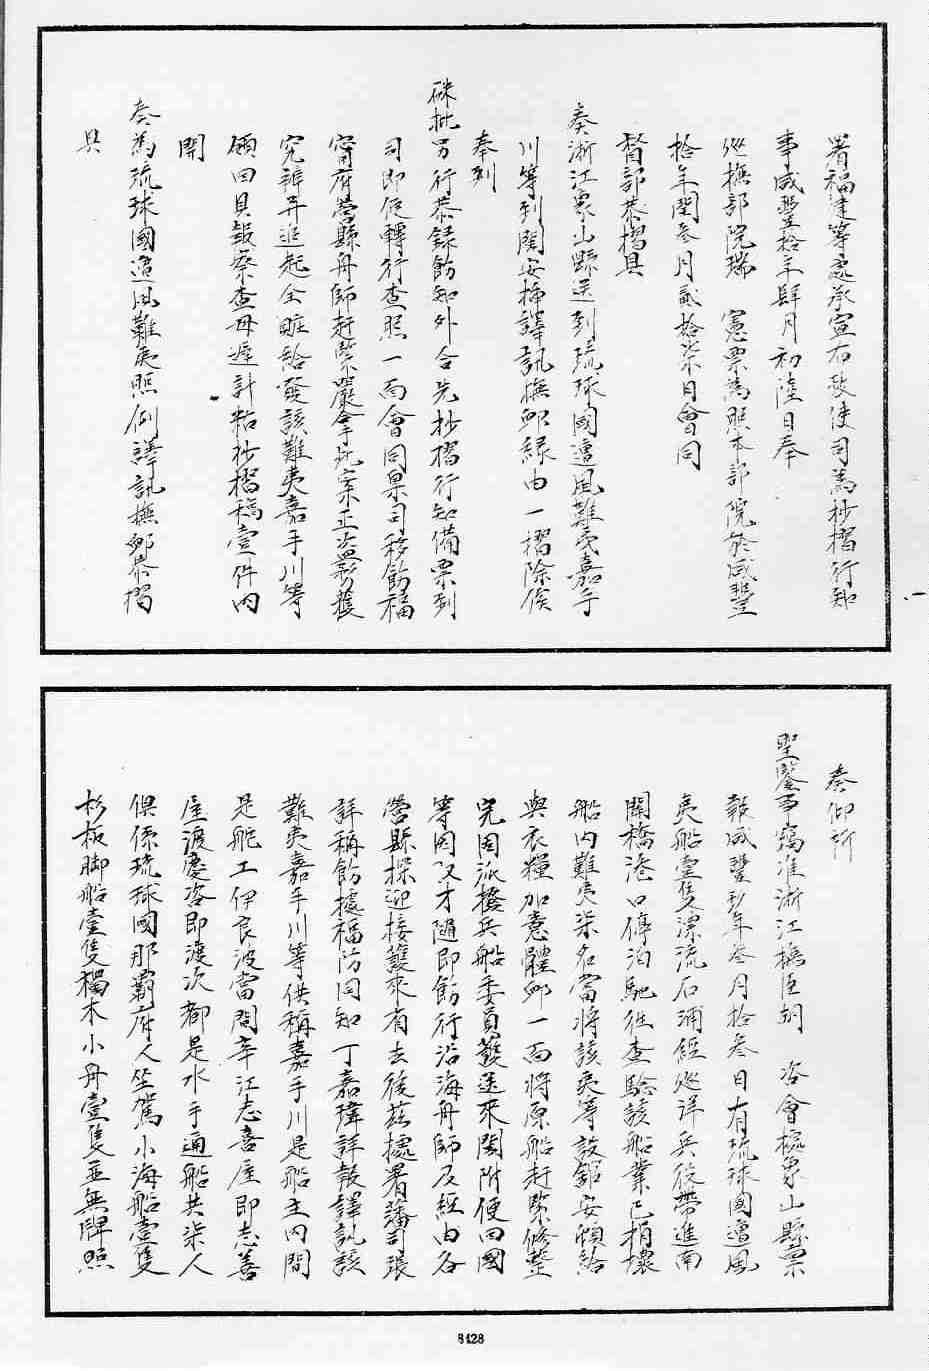 署福建等處承宣布政使司為抄摺行知
事咸豐拾年肆月初陸日奉
巡撫部院瑞 憲票為照本部院於咸豐
拾年閏叁月貳拾柒日會同
督部恭摺具
奏浙江象山縣送到琉球國遭風難夷嘉手
川等到閩安插譯訊撫卹緣由一摺除俟
奉到
硃批另行恭錄飭知外合先抄摺行知備票到
司即便轉行查照一面會同臬司移飭福
寧府營縣舟師赶緊嚴拿此案正盜夥獲
究辦并追起全贓給發該難夷嘉手川等
領回具報察查毋遲計粘抄摺稿壹件內
開
奏為琉球國遭風難夷照例譯訊撫卹恭摺
具
奏仰祈
聖鑒事竊准浙江撫臣胡 咨會據象山縣禀
報咸豐玖年叁月拾叁日有琉球國遭風
夷船壹隻漂流石浦經巡洋兵役帶進南
關橋港口停泊馳往查驗該船業已損壞
船內難夷柒名當將該夷等設館安頓給
與衣糧加意體卹一面將原船赶緊修整
完固派撥兵船委員護送來閩附便回國
等因 隨即飭行沿海舟師及經由各
營縣探迎接護來省去後茲據署藩司張
詳稱飭據福防同知丁嘉瑋詳報譯訊該
難夷嘉手川等供稱嘉手川是船主內間
是舵工伊良波當間幸江志喜屋即志善
屋渡慶咨即渡次都是水手通船共柒人
俱係琉球國那霸府人坐駕小海船壹隻
杉板脚船壹隻獨木小舟壹隻並無牌照
8428